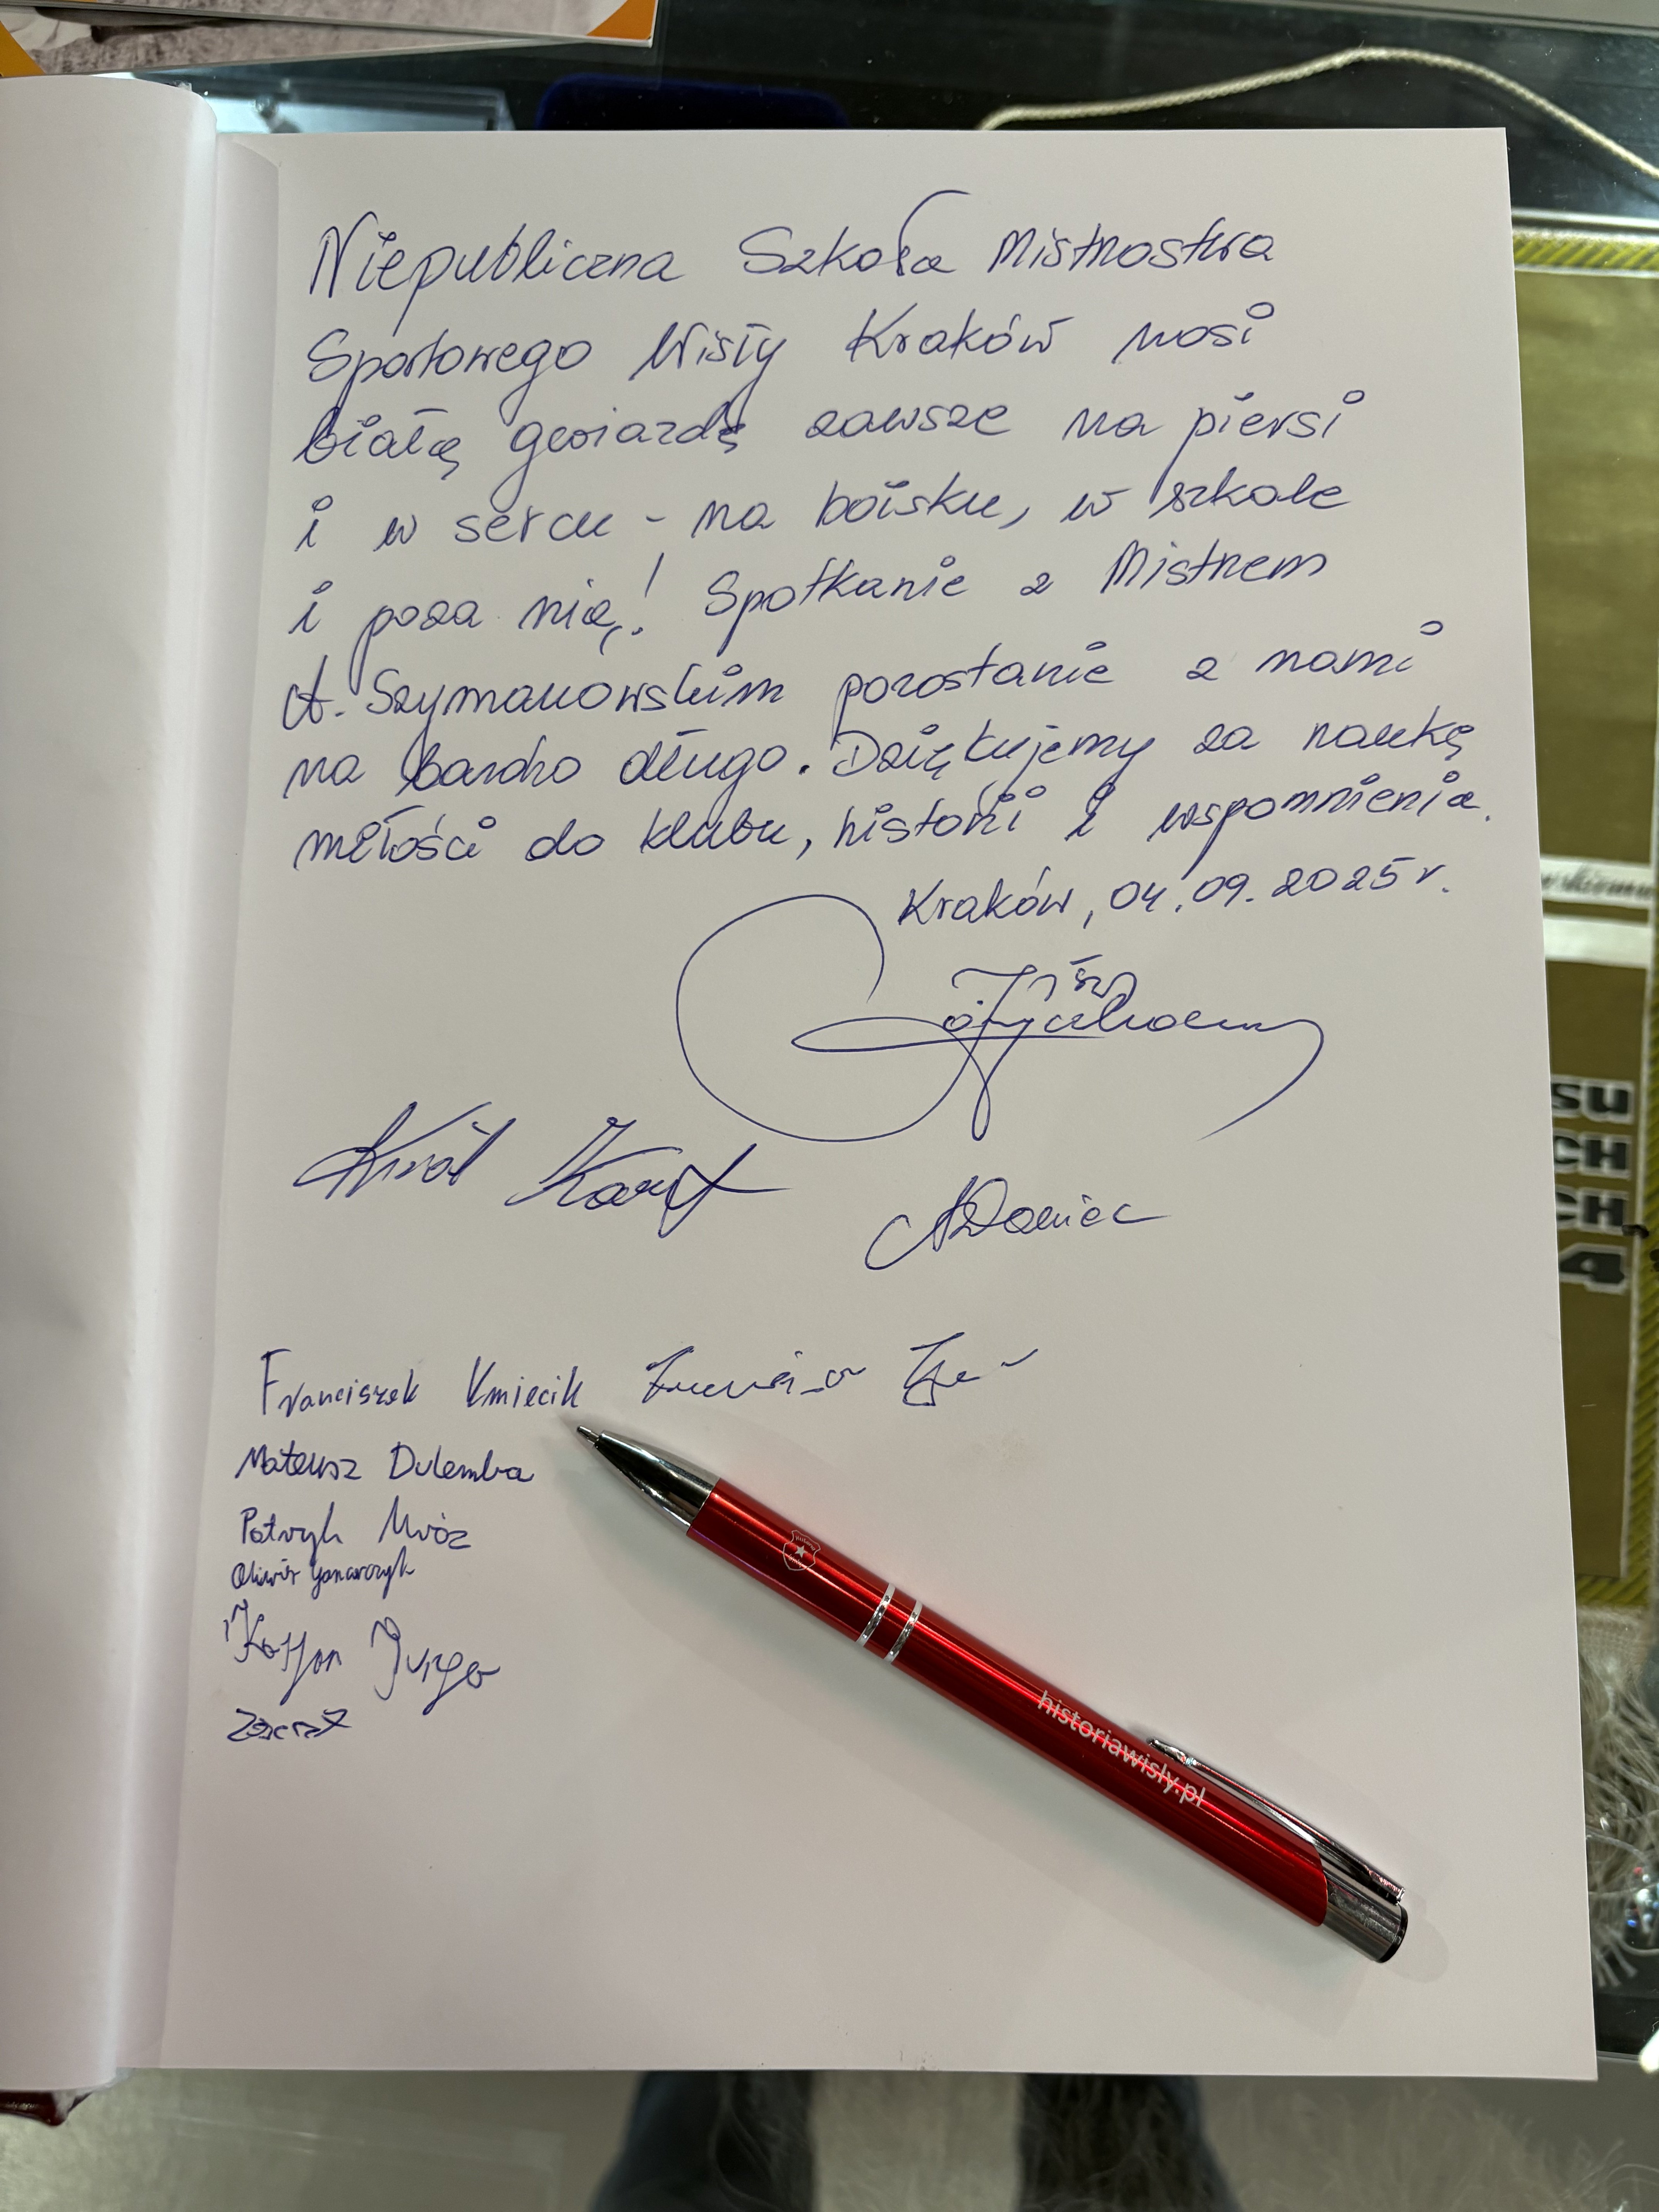 Niepubliczna Szkoła Mistrzostwa
Sportowego Wisły Kraków nosi
białą gwiazdę zawsze na piersi
i w sercu - na boisku, w szkole
i poza nią! Spotkanie z Mistrzem
A. Szymanowskim pozostanie z nami
na bardzo długo. Dziękujemy za naukę
miłości do klubu, historii i wspomnienia.
Kraków, 04.09.2025 r.
Król
Franciszek Kmiecik
Mateusz Dulemba
Patryk Mróz
Oliwier
Kajtan
historiawisly.pl
SU
CH
CH
4